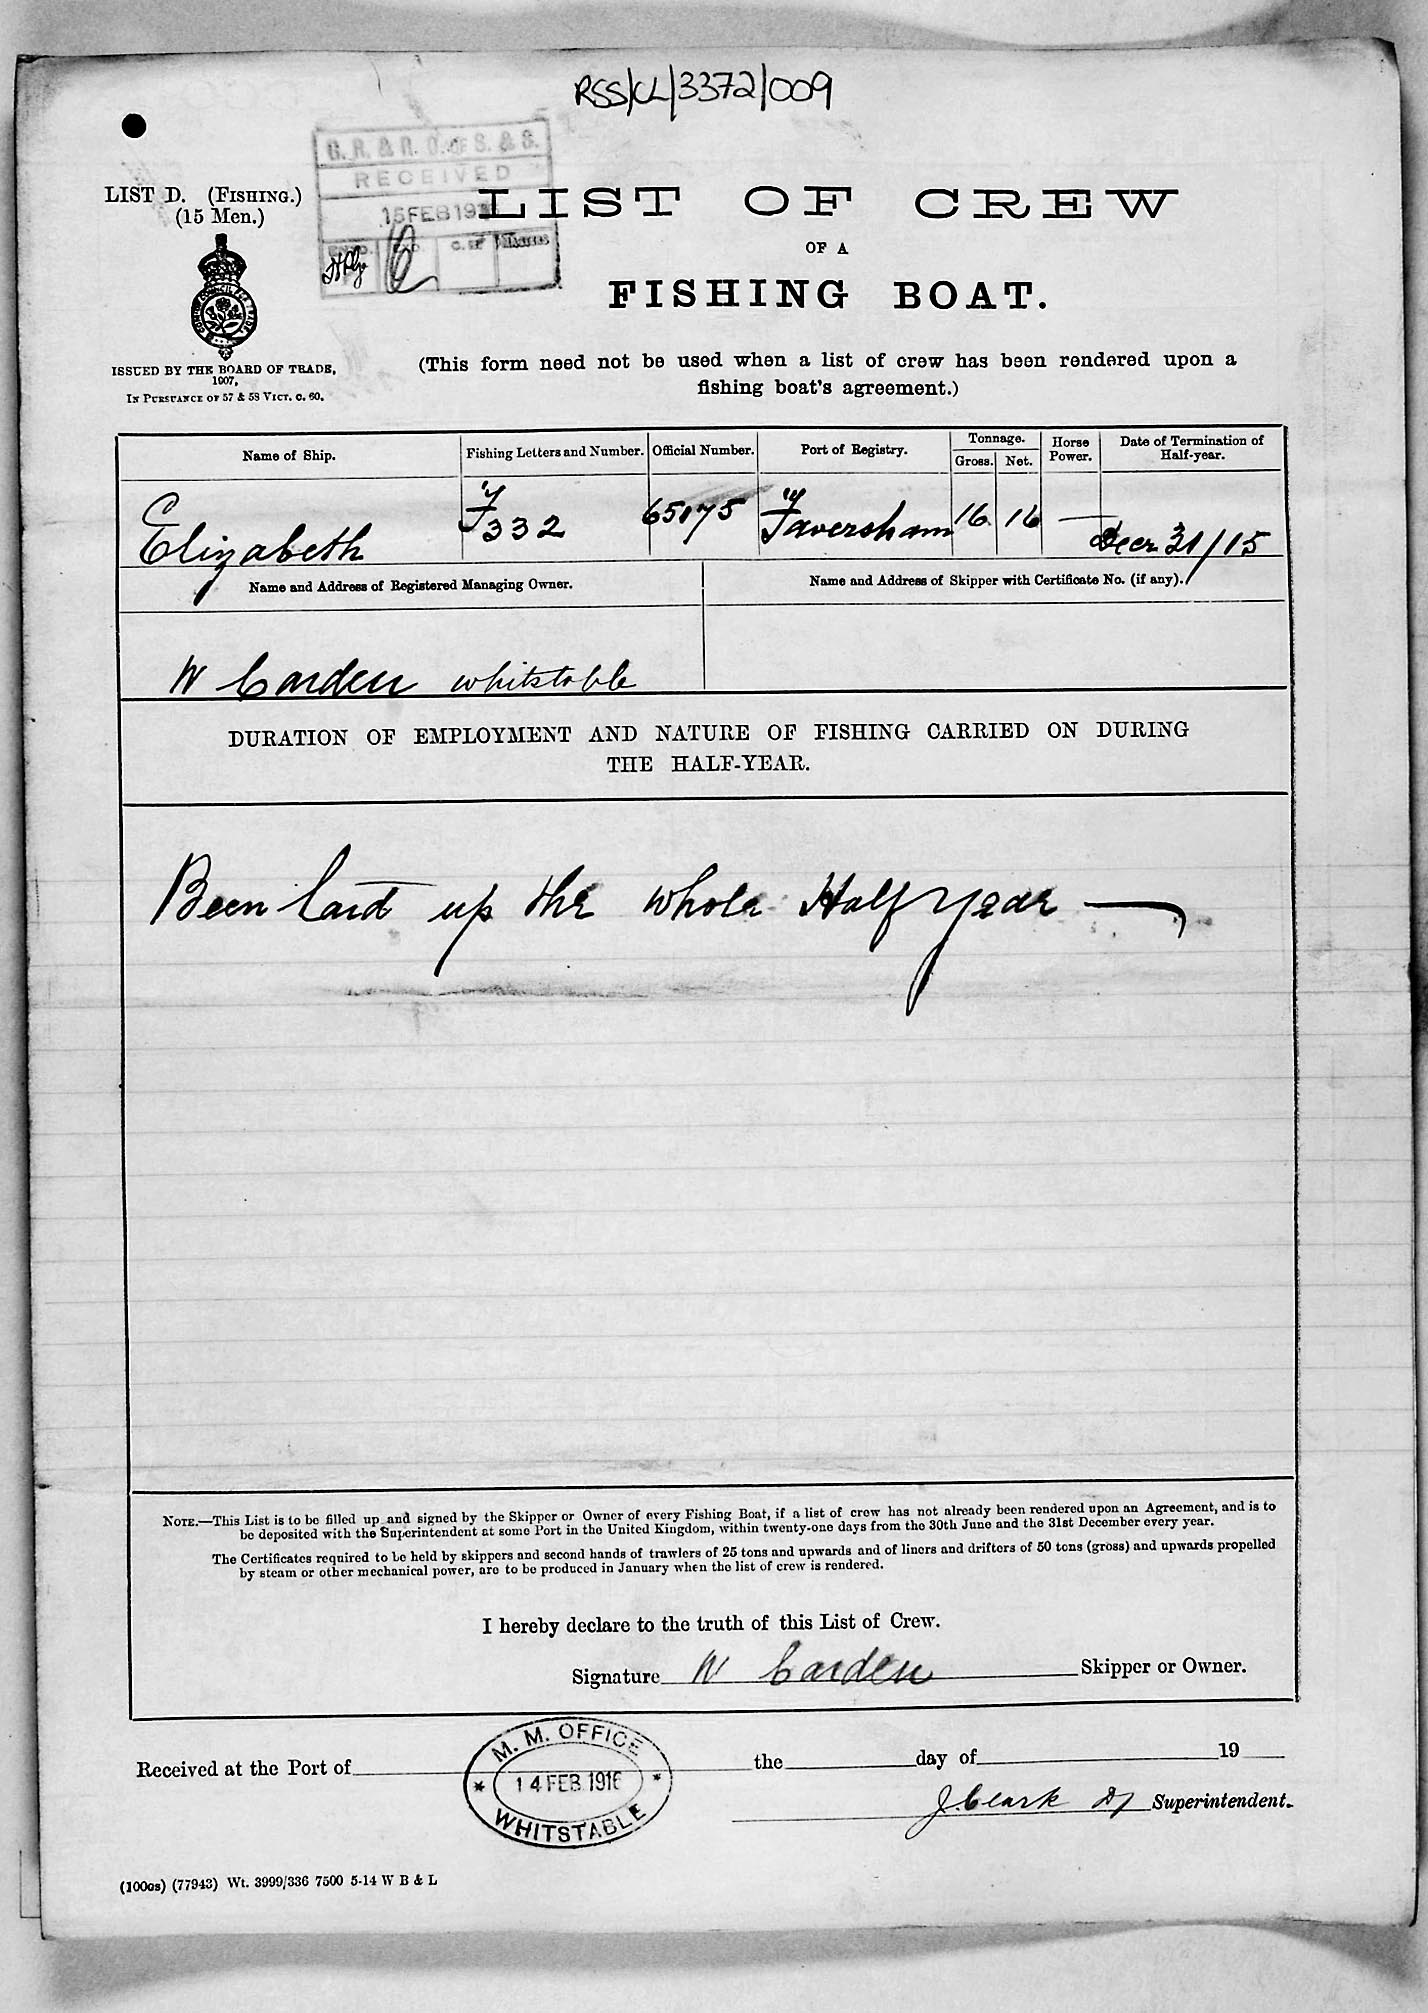 RSS/CL/3372/009
LIST D. (FISHING.)
(15 Men.)
G. R. & R. O. OF S. & S.
RECEIVED
15 FEB 191
LIST OF CREW
OF A
FISHING BOAT.
ISSUED BY THE BOARD OF TRADE,
1907,
IN PURSUANCE OF 57 & 58 VICT. C. 60.
(This form need not be used when a list of crew has been rendered upon a
fishing boat's agreement.)
Name of Ship. Fishing Letters and Number. Official Number. Port of Registry. Tonnage. Gross. Net. Horse Power. Date of Termination of Half-year.
Elizabeth F 332 65175 Faversham 16 16 — Decr 31/15
Name and Address of Registered Managing Owner. Name and Address of Skipper with Certificate No. (if any).
W Carden Whitstable
DURATION OF EMPLOYMENT AND NATURE OF FISHING CARRIED ON DURING
THE HALF-YEAR.
Been laid up the whole Half year —
NOTE.—This List is to be filled up and signed by the Skipper or Owner of every Fishing Boat, if a list of crew has not already been rendered upon an Agreement, and is to
be deposited with the Superintendent at some Port in the United Kingdom, within twenty-one days from the 30th June and the 31st December every year.
The Certificates required to be held by skippers and second hands of trawlers of 25 tons and upwards and of liners and drifters of 50 tons (gross) and upwards propelled
by steam or other mechanical power, are to be produced in January when the list of crew is rendered.
I hereby declare to the truth of this List of Crew.
Signature W Carden Skipper or Owner.
M. M. OFFICE
Received at the Port of the day of 19
14 FEB 1916
WHITSTABLE
J. Clark Superintendent.
(100os) (77943) Wt. 3999/336 7500 5-14 W B & L